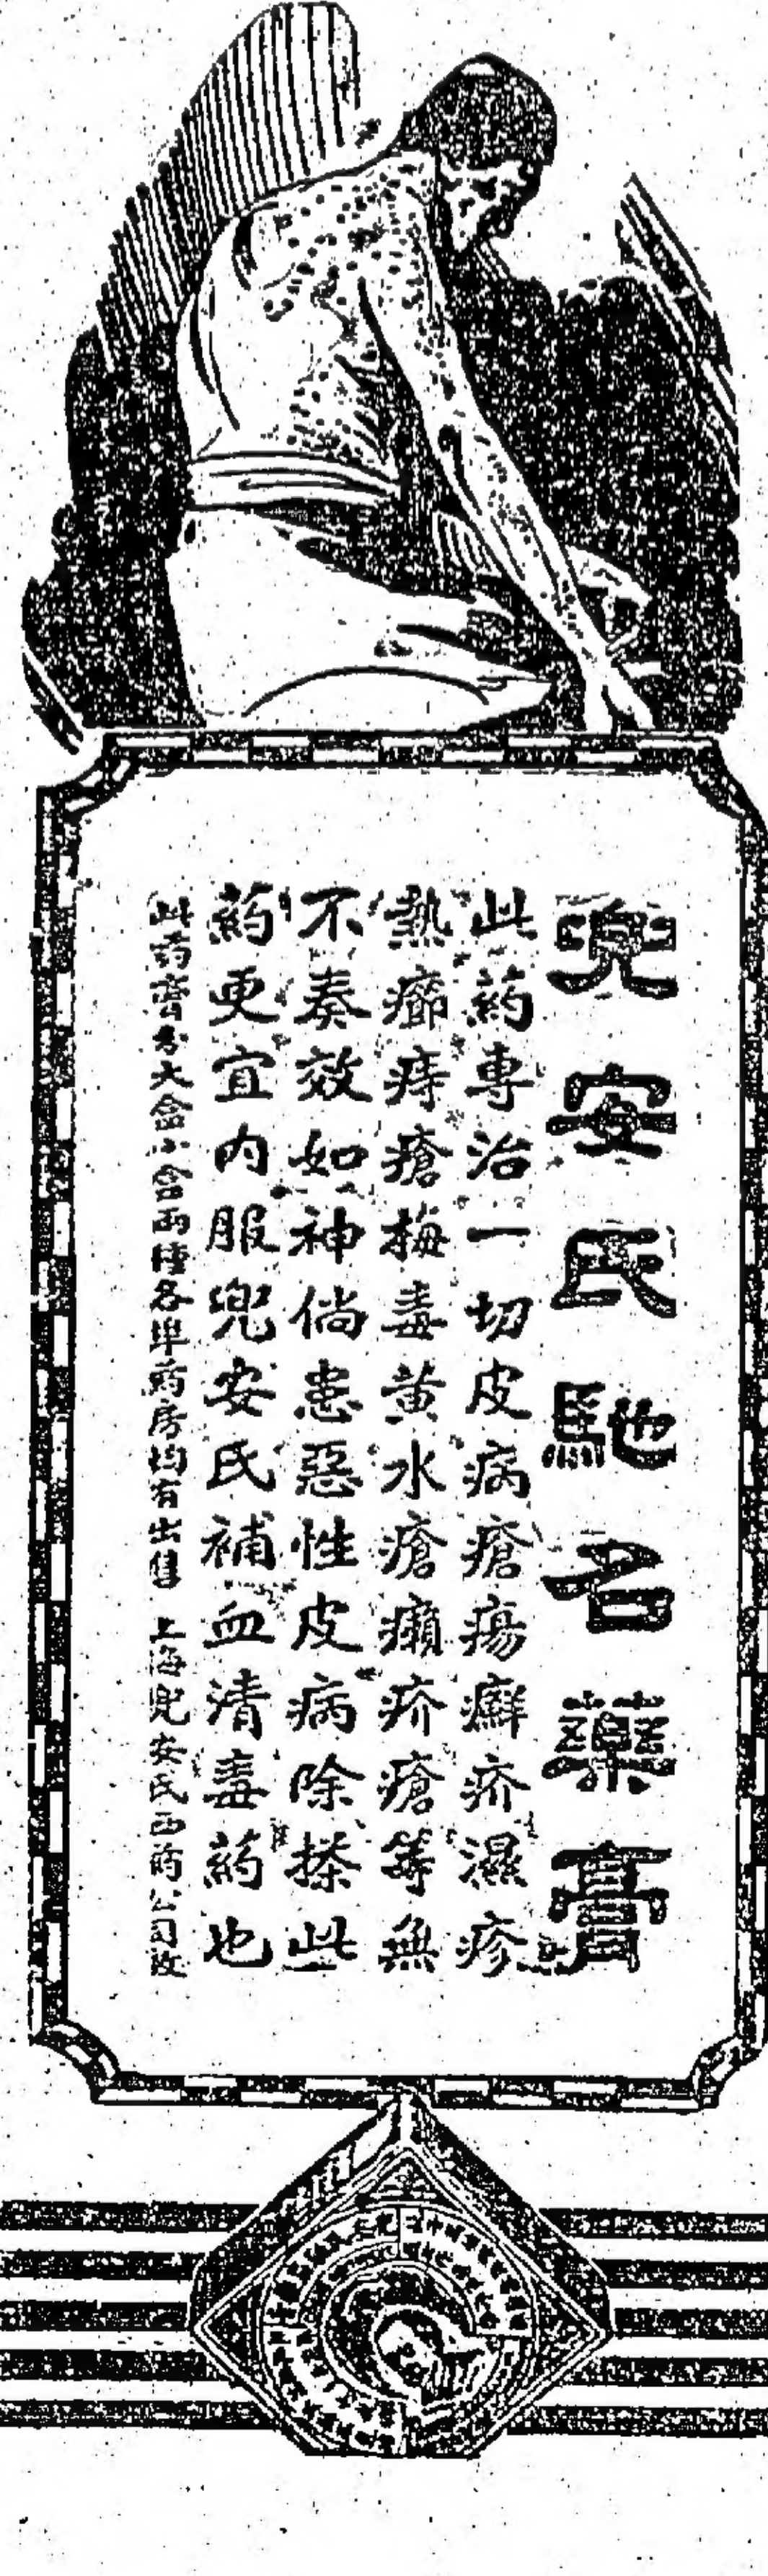 兜安氏馳名藥膏
此葯專治一切皮病瘡瘍癬疥濕疹
熱癤痔瘡梅毒黃水瘡癩疥瘡等無
不奏效如神倘患惡性皮病除搽此
葯更宜內服兜安氏補血清毒葯也
此葯膏分大盒小盒兩種各埠葯房均有出售 上海兜安氏西葯公司啟